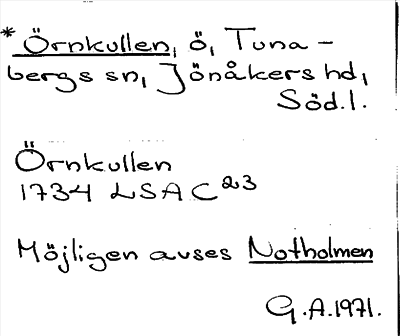 * Örnkullen, ö, Tuna-
bergs sn, Jönåkers hd,
Söd.l.
Örnkullen
1734 LSA C23
Möjligen avses Notholmen
G.A.1971.